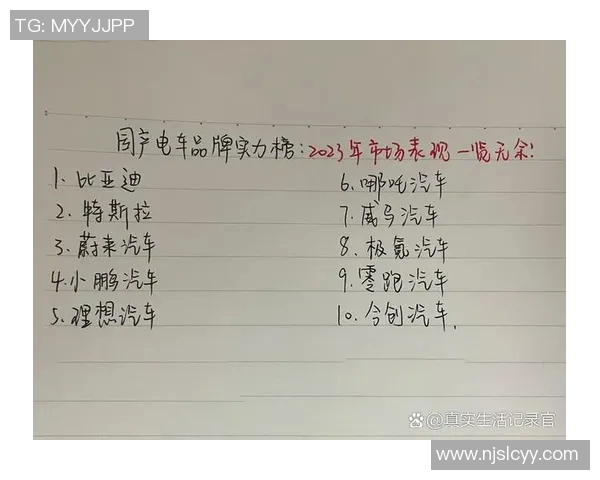 TG: MYYJJPP
国产电车品牌实力榜:2023年市场表现一览无余!
1. 比亚迪
2. 特斯拉
3. 蔚来汽车
4. 小鹏汽车
5. 理想汽车
6. 哪吒汽车
7. 威马汽车
8. 极氪汽车
9. 零跑汽车
10. 合创汽车.
@真实生活记录官
www.njslcyy.com